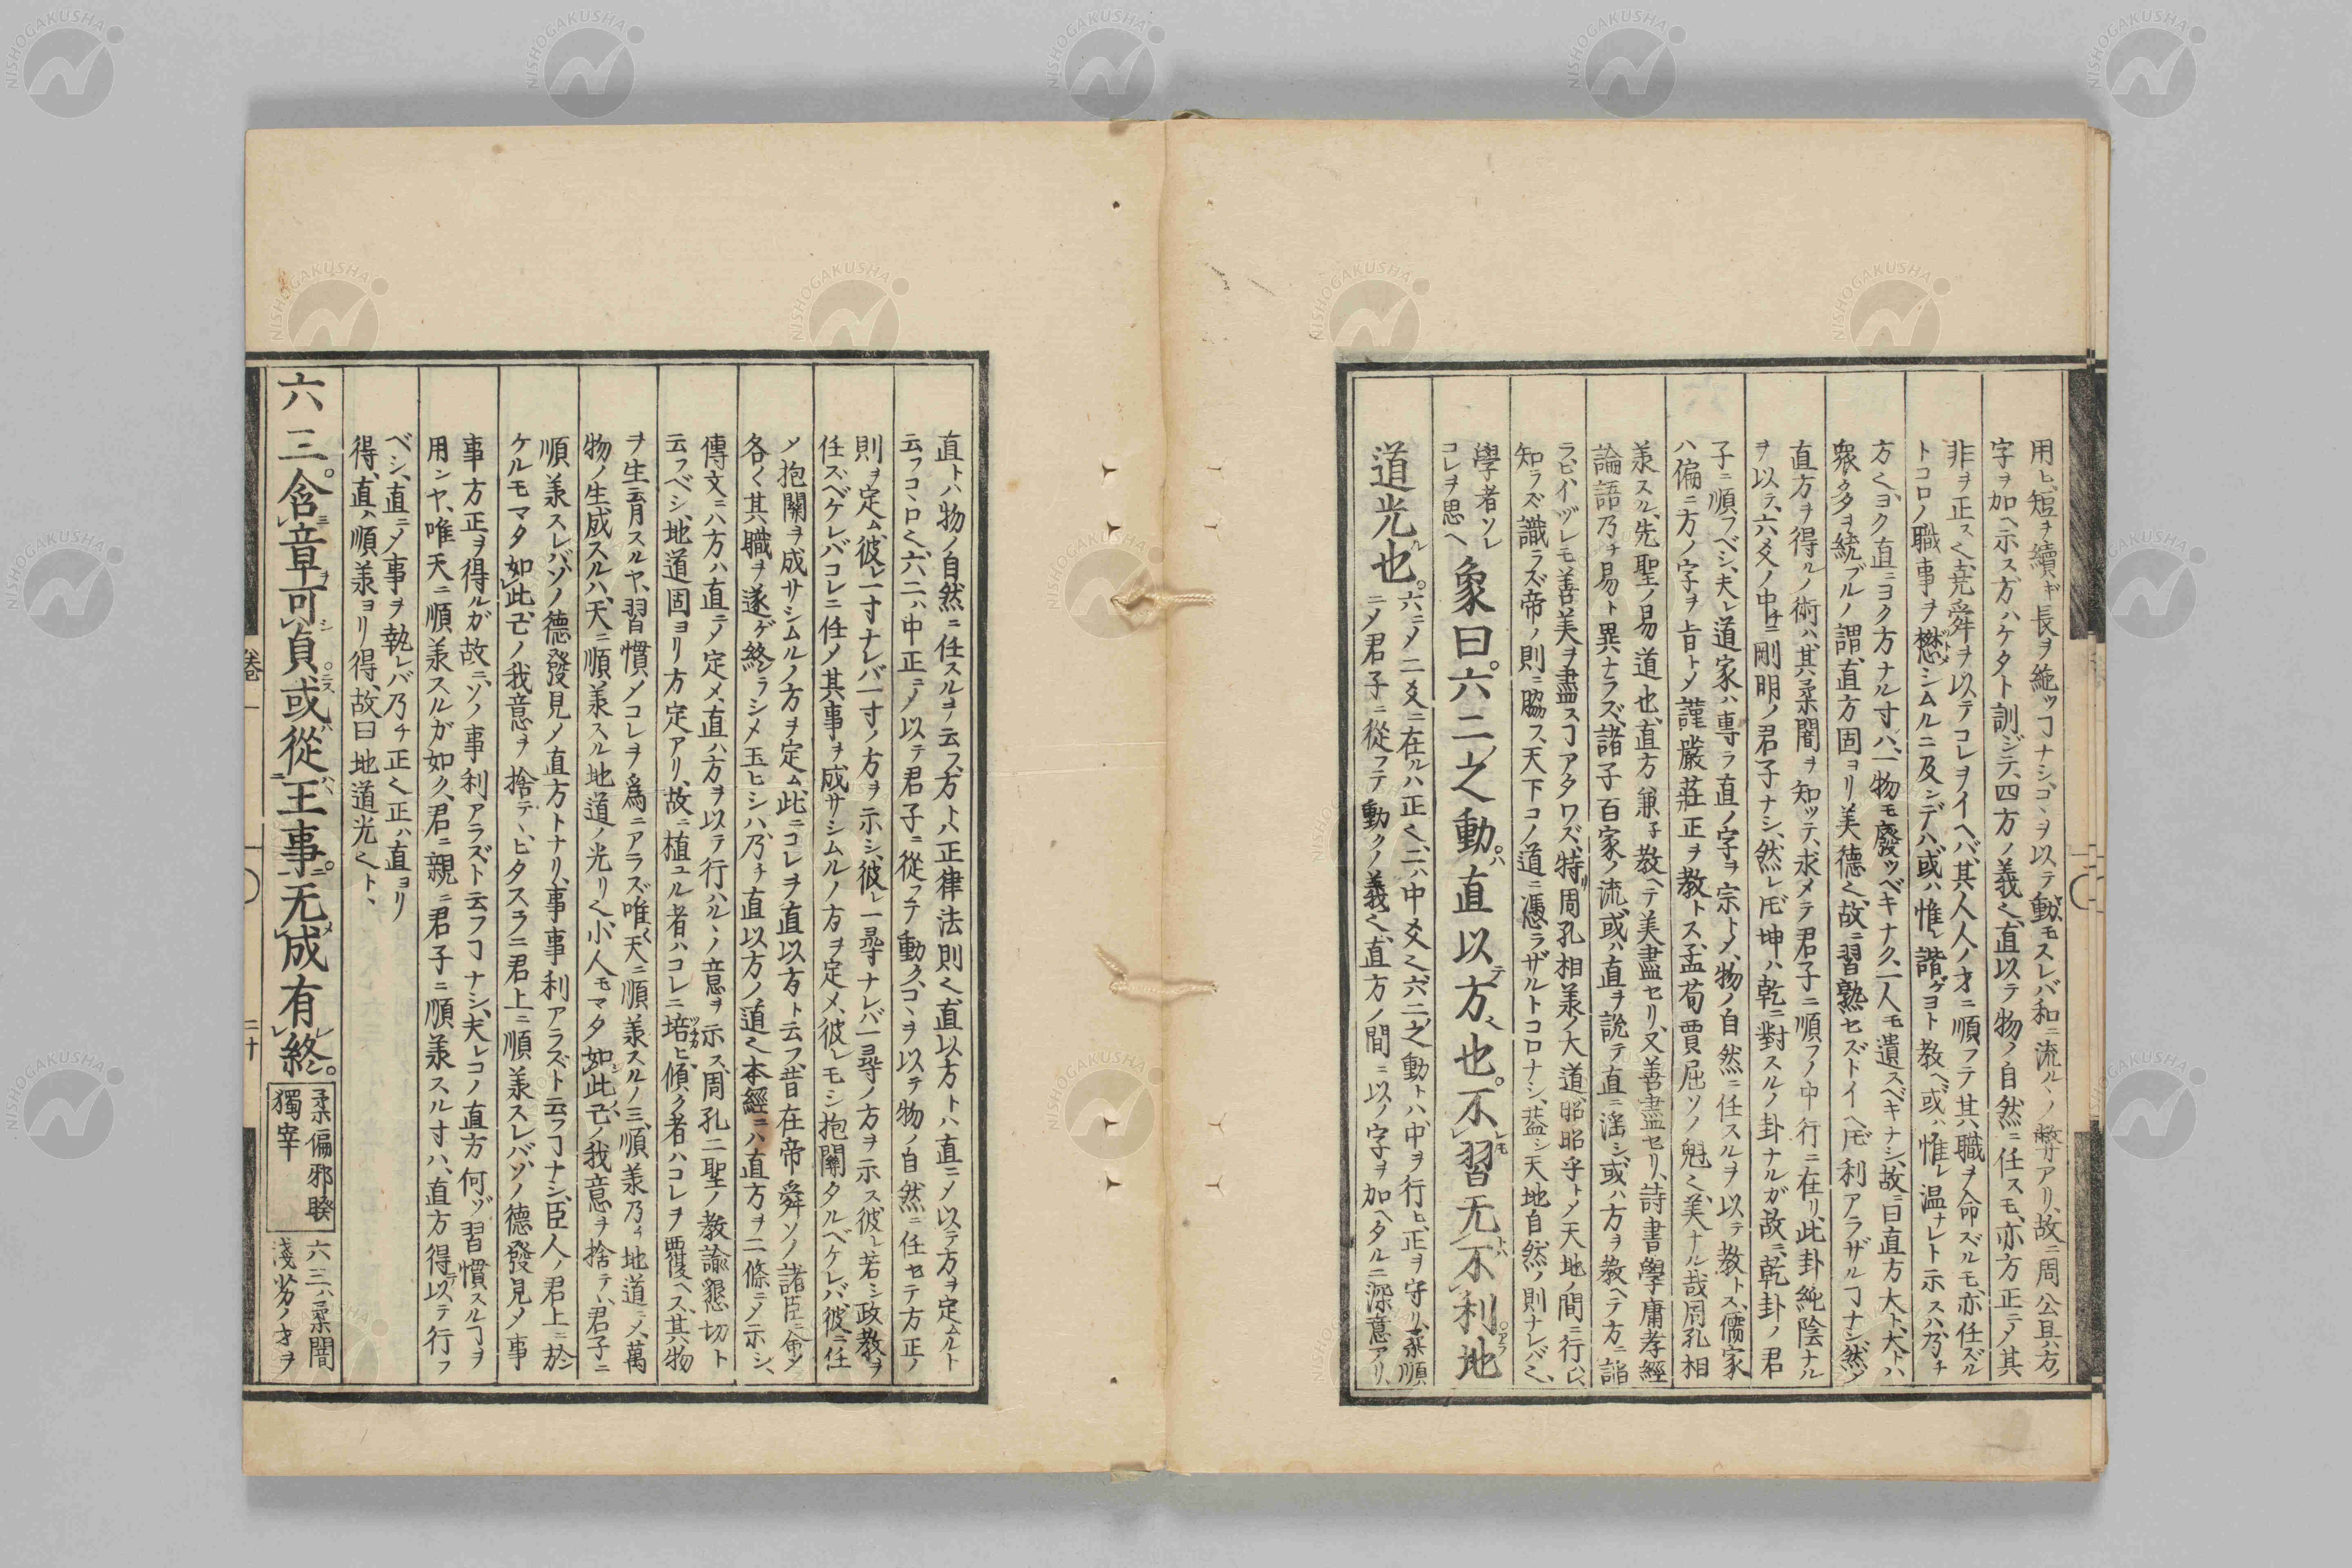 用ヒ、短ヲ續ギ長ヲ絁ツヿナシ、コヽヲ以テ動モスレバ和ニ流ルヽノ弊アリ、故ニ周公其方ノ
字ヲ加ヘ示ス、方ハケタト訓ジテ、四方ノ義也、直以テ物ノ自然ニ任スモ、亦方正ニメ其
非ヲ正ス也、堯舜ヲ以テコレヲイヘバ、其人人ノ才ニ順フテ其職ヲ命ズルモ、亦任ズル
トコロノ職事ヲ懋シムルニ及ンデハ、或ハ惟レ諧グヨト教ヘ、或ハ惟レ温ナレト示スハ、乃チ
方也、ヨク直ニヨク方ナル寸ハ、一物モ廢ツベキナク、一人モ遺スベキナシ、故ニ曰直方大ト、大トハ
衆多ヲ統ブルノ謂、直方固ヨリ美德也、故ニ習熟セズトイヘドモ利アラザルヿナシ、然メ
直方ヲ得ルノ術ハ、其柔闇ヲ知ッテ、求メテ君子ニ順フノ中行ニ在リ、此卦純陰ナル
ヲ以テ、六爻ノ中ニ剛明ノ君子ナシ、然レドモ坤ハ乾ニ對スルノ卦ナルガ故ニ、乾卦ノ君
子ニ順フベシ、夫レ道家ハ專ラ直ノ字ヲ宗トメ、物ノ自然ニ任スルヲ以テ教トス、儒家
ハ偏ニ方ノ字ヲ旨トメ、謹嚴莊正ヲ教トス、孟荀賈屈ソノ魁也、美ナル哉周孔相
羕スル、先聖ノ易道也、直方兼子教ヘテ美盡セリ、又善盡セリ、詩書學庸孝經
論語乃チ易ト異ナラズ、諸子百家ノ流、或ハ直ヲ說テ直ニ滛シ、或ハ方ヲ教ヘテ方ニ諂
ラヒ、イヅレモ善美ヲ盡スヿアタワズ、特リ周孔相羕ノ大道、昭昭乎トメ天地ノ間ニ行ハレ
知ラズ識ラズ帝ノ則ニ脇ス、天下コノ道ニ憑ラザルトコロナシ、蓋シ天地自然ノ則ナレバ也、
學者ソレ
コレヲ思ヘ
象曰。六二之動。直以方也。不習无不利地
道光也。
六ニメ二爻ニ在ルハ正也、二ハ中爻也、六二之動トハ、中ヲ行ヒ、正ヲ守リ、柔順
ニメ君子ニ從フテ動クノ義也、直方ノ間ニ以ノ字ヲ加ヘタルニ深意アリ、
直トハ物ノ自然ニ任スルヲ云フ、方トハ正律法則也、直以方トハ直ニメ以テ方ヲ定ムルト
云フコヽロ也、六二ハ中正ニメ以テ君子ニ從フテ動ク、コヽヲ以テ物ノ自然ニ任セテ方正ノ
則ヲ定ム、彼レ一寸ナレバ一寸ノ方ヲ示シ、彼レ一尋ナレバ一尋ノ方ヲ示ス、彼レ若シ政教ヲ
任ズベケレバコレニ任メ其事ヲ成サシムルノ方ヲ定メ、彼レモシ抱關タルベケレバ、彼ニ任
メ抱關ヲ成サシムルノ方ヲ定ム、此ニコレヲ直以方ト云フ、昔在帝舜ソノ諸臣ニ命メ
各〱其職ヲ遂ゲ終ラシメ玉ヒシハ、乃チ直以方ノ道也、本經ニハ直方ヲ二條ニメ示シ、
傳文ニハ方ハ直ニメ定メ、直ハ方ヲ以テ行ハルヽノ意ヲ示ス、周孔二聖ノ教諭懇切ト
云フベシ、地道固ヨリ方定アリ、故ニ植ユル者ハコレニ培ヒ、傾ク者ハコレヲ覆ヘス、其物
ヲ生育スルヤ、習慣メコレヲ爲ニアラズ、唯〱天ニ順羕スルノミ、順羕乃チ地道ニメ、萬
物ノ生成スルハ、天ニ順羕スル地道ノ光リ也、小人モマタ如此、己ノ我意ヲ捨テヽ、君子ニ
順羕スレバ、ソノ德發見メ直方トナリ、事事利アラズト云フヿナシ、臣人ノ君上ニ於
ケルモマタ如此、己ノ我意ヲ捨テヽ、ヒタスラニ君上ニ順羕スレバ、ソノ德發見メ事
事方正ヲ得ルガ故ニ、ソノ事利アラズト云フヿナシ、夫レコノ直方何ゾ習慣スルヿヲ
用ンヤ、唯天ニ順羕スルガ如ク、君ニ親ニ君子ニ順羕スル寸ハ、直方得テ以テ行フ
ベシ、直ニメ事ヲ執レバ乃チ正也、正ハ直ヨリ
得、直ハ順羕ヨリ得、故曰地道光也ト、
六三。含章可貞。或從王事。无成有終。
柔偏邪睽
獨宰
六三ハ柔闇
淺劣ノ才ヲ
卷一
二十